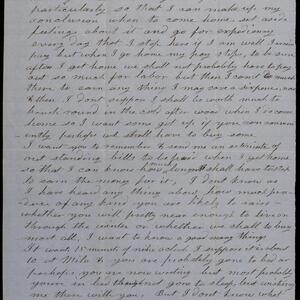 particularly so that I can make up my
conclusion when to come home. set aside
feeling about it and go for expediency
every day that I stop here I am well & earn
pay but when I go home my pay stops, to be sure
after I get home we shall not probably have to pay
out so much for labor but then I come so much
there to earn any thing I may save a sixpence, now
& then I dont suppose I shall be worth much to
branch round in the soft after noon when I do come
home so I want some put up if you can conven
ently perhaps we shall have to buy some.
I want you to remember & send me an estimate of
out standing bills to be paid when I get home
so that I can know how long I shall have to stop
to earn the money for it, I dont know as
I have heard any thing about how much pro
duce of any kind you are likely to raise
whether you will pretty near enough to live on
through the winter or whether we shall have to buy
most all, I want to know a good many things
it wants 15 minuts of nine o'clock I suppose
at Milo & you are probably gone to bed or
perhaps you are now writing but most probably
you're in bed though not gone to sleep but wishing
me there with you. But I dont know what